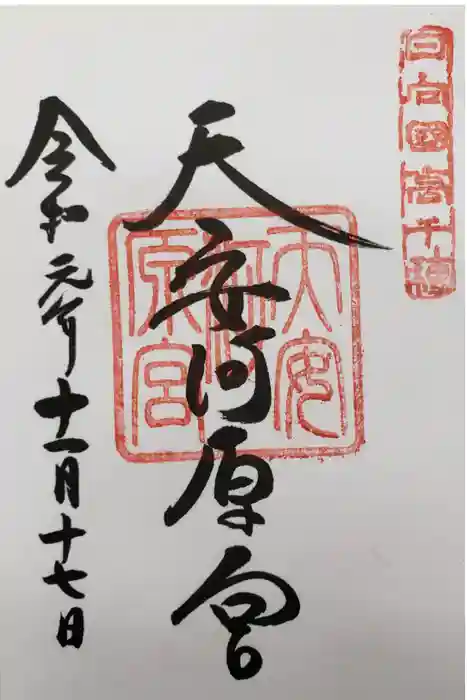 日向國高千穂
天安河原宮
天安河原宮
令和元年十一月十七日